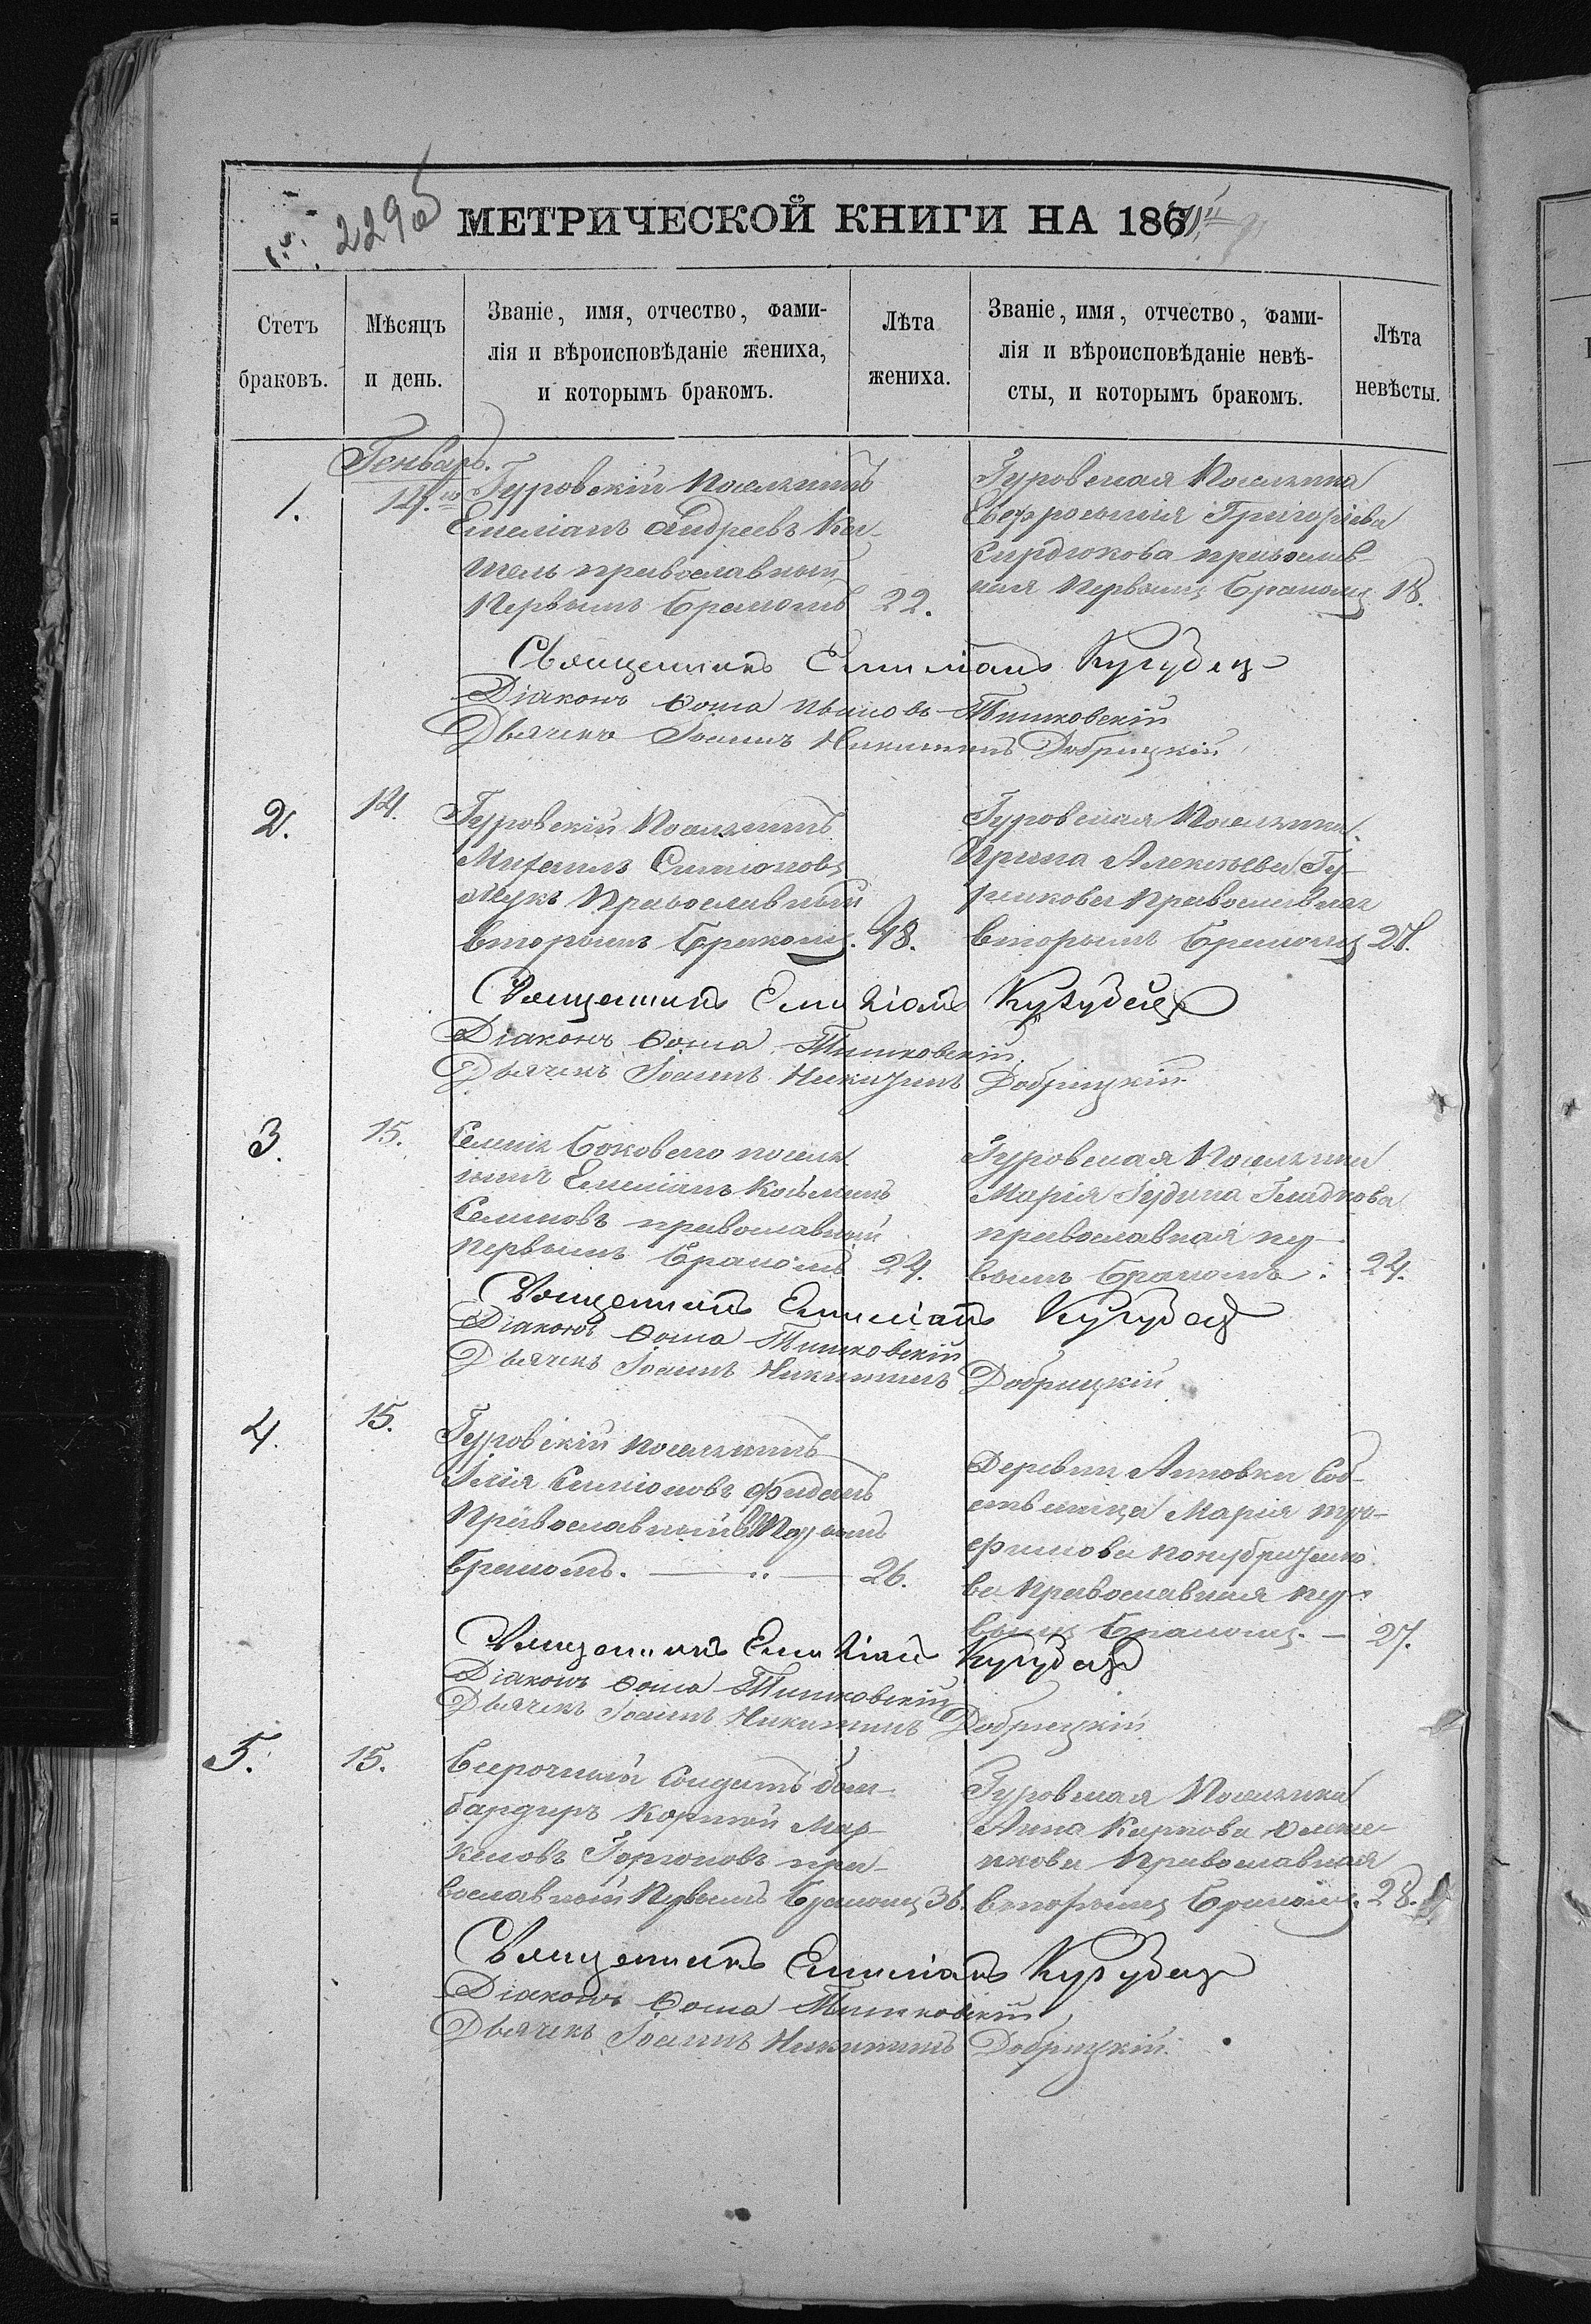 229 об
МЕТРИЧЕСКОЙ КНИГИ НА 186
Стетъ браковъ.
Мѣсяцъ и день.
Званіе, имя, отчество, фами-
лія и вѣроисповѣданіе жениха,
и которымъ бракомъ.
Лѣта жениха.
Званіе, имя, отчество, фами-
лія и вѣроисповѣданіе невѣ-
сты, и которымъ бракомъ.
Лѣта невѣсты.
Генварь.
1.
14.го
Гуровскій Поселянинъ
Емеліанъ Андреевъ Ка-
шель православный
Первымъ бракомъ 22.
Гуровская Поселянка
Евфросинія Григорiева
Сирдюкова православ-
ная Первымъ бракомъ 18.
Священникъ Емиліанъ Кугубец
Діаконъ Ѳома Ивановъ Тимковскій
Дьячекъ Іоаннъ Никитинъ Добрицкій
2.
14.
Гуровскій Поселянинъ
Михаилъ Симионовъ
Жукъ Православный
вторымъ бракомъ. 48.
Гуровская Поселянка
Ирина Алексѣева
Православная
вторымъ бракомъ 27.
Священникъ Емиліанъ Кугубец
Діаконъ Ѳома Тимковскій.
Дьячекъ Іоаннъ Никитинъ Добрицкій
3.
15.
Боковаго поселя-
нинъ Емеліанъ Козьминъ
Селиновъ православный
первымъ бракомъ 24.
Гуровская Поселянка
Марія Іудина Гладкова
православная пер-
вымъ бракомъ. 24.
Священникъ Емиліанъ Кугубец
Діаконъ Ѳома Тимковскій
Дьячекъ Іоаннъ Никитинъ Добрицкій
4.
15.
Гуровскій поселянинъ
Илія Симіоновъ
Православный Первымъ
бракомъ. 26.
Деревни Анновки Соб-
ственница Марія Тро-
фимова
ва Православная пер-
вымъ бракомъ. 27.
Священникъ Емиліанъ Кугубец
Діаконъ Ѳома Тимковскій
Дьячекъ Іоаннъ Никитинъ Добрицкій
5.
15.
Безсрочный Солдатъ бом-
бардиръ Корнѣй Мар-
келовъ Горюновъ пра-
вославный Первымъ бракомъ 36.
Гуровская Поселянка
Анна Карпова
Православная
вторымъ бракомъ. 28.
Священникъ Емиліанъ Кугубец
Діаконъ Ѳома Тимковскій
Дьячекъ Іоаннъ Никитинъ Добрицкій.